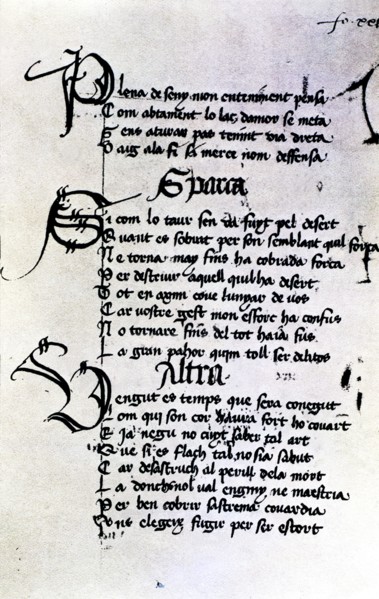 fo. xx
Plena de seny mon enteniment pensa
Com abtament lo laç damor se meta
Sens aturar pas tenint via dreta
Vaig ala fi si merce nom deffensa
Sparça
Si com lo taur sen va fuyt pel desert
Quant es sobrat per son semblant quil força
Ne torna may fins ha cobrada força
Per destruir aquell quilha desert
Tot en axim cove lunyar de vos
Car vostre gest mon esforç ha confus
No tornare fins del tot haia fus
La gran pahor quim toll ser delitos
Altra
Vengut es temps que sera conegut
Lom qui son cor haura fort ho covart
E Ja negu no cuyt saber tal art
Que si es flach tal no sia sabut
Car desastruch al perill dela mort
La donchs nol val engyn ne maestria
Per ben cobrir sastrema covardia
ans elegeix fugir per ser estort